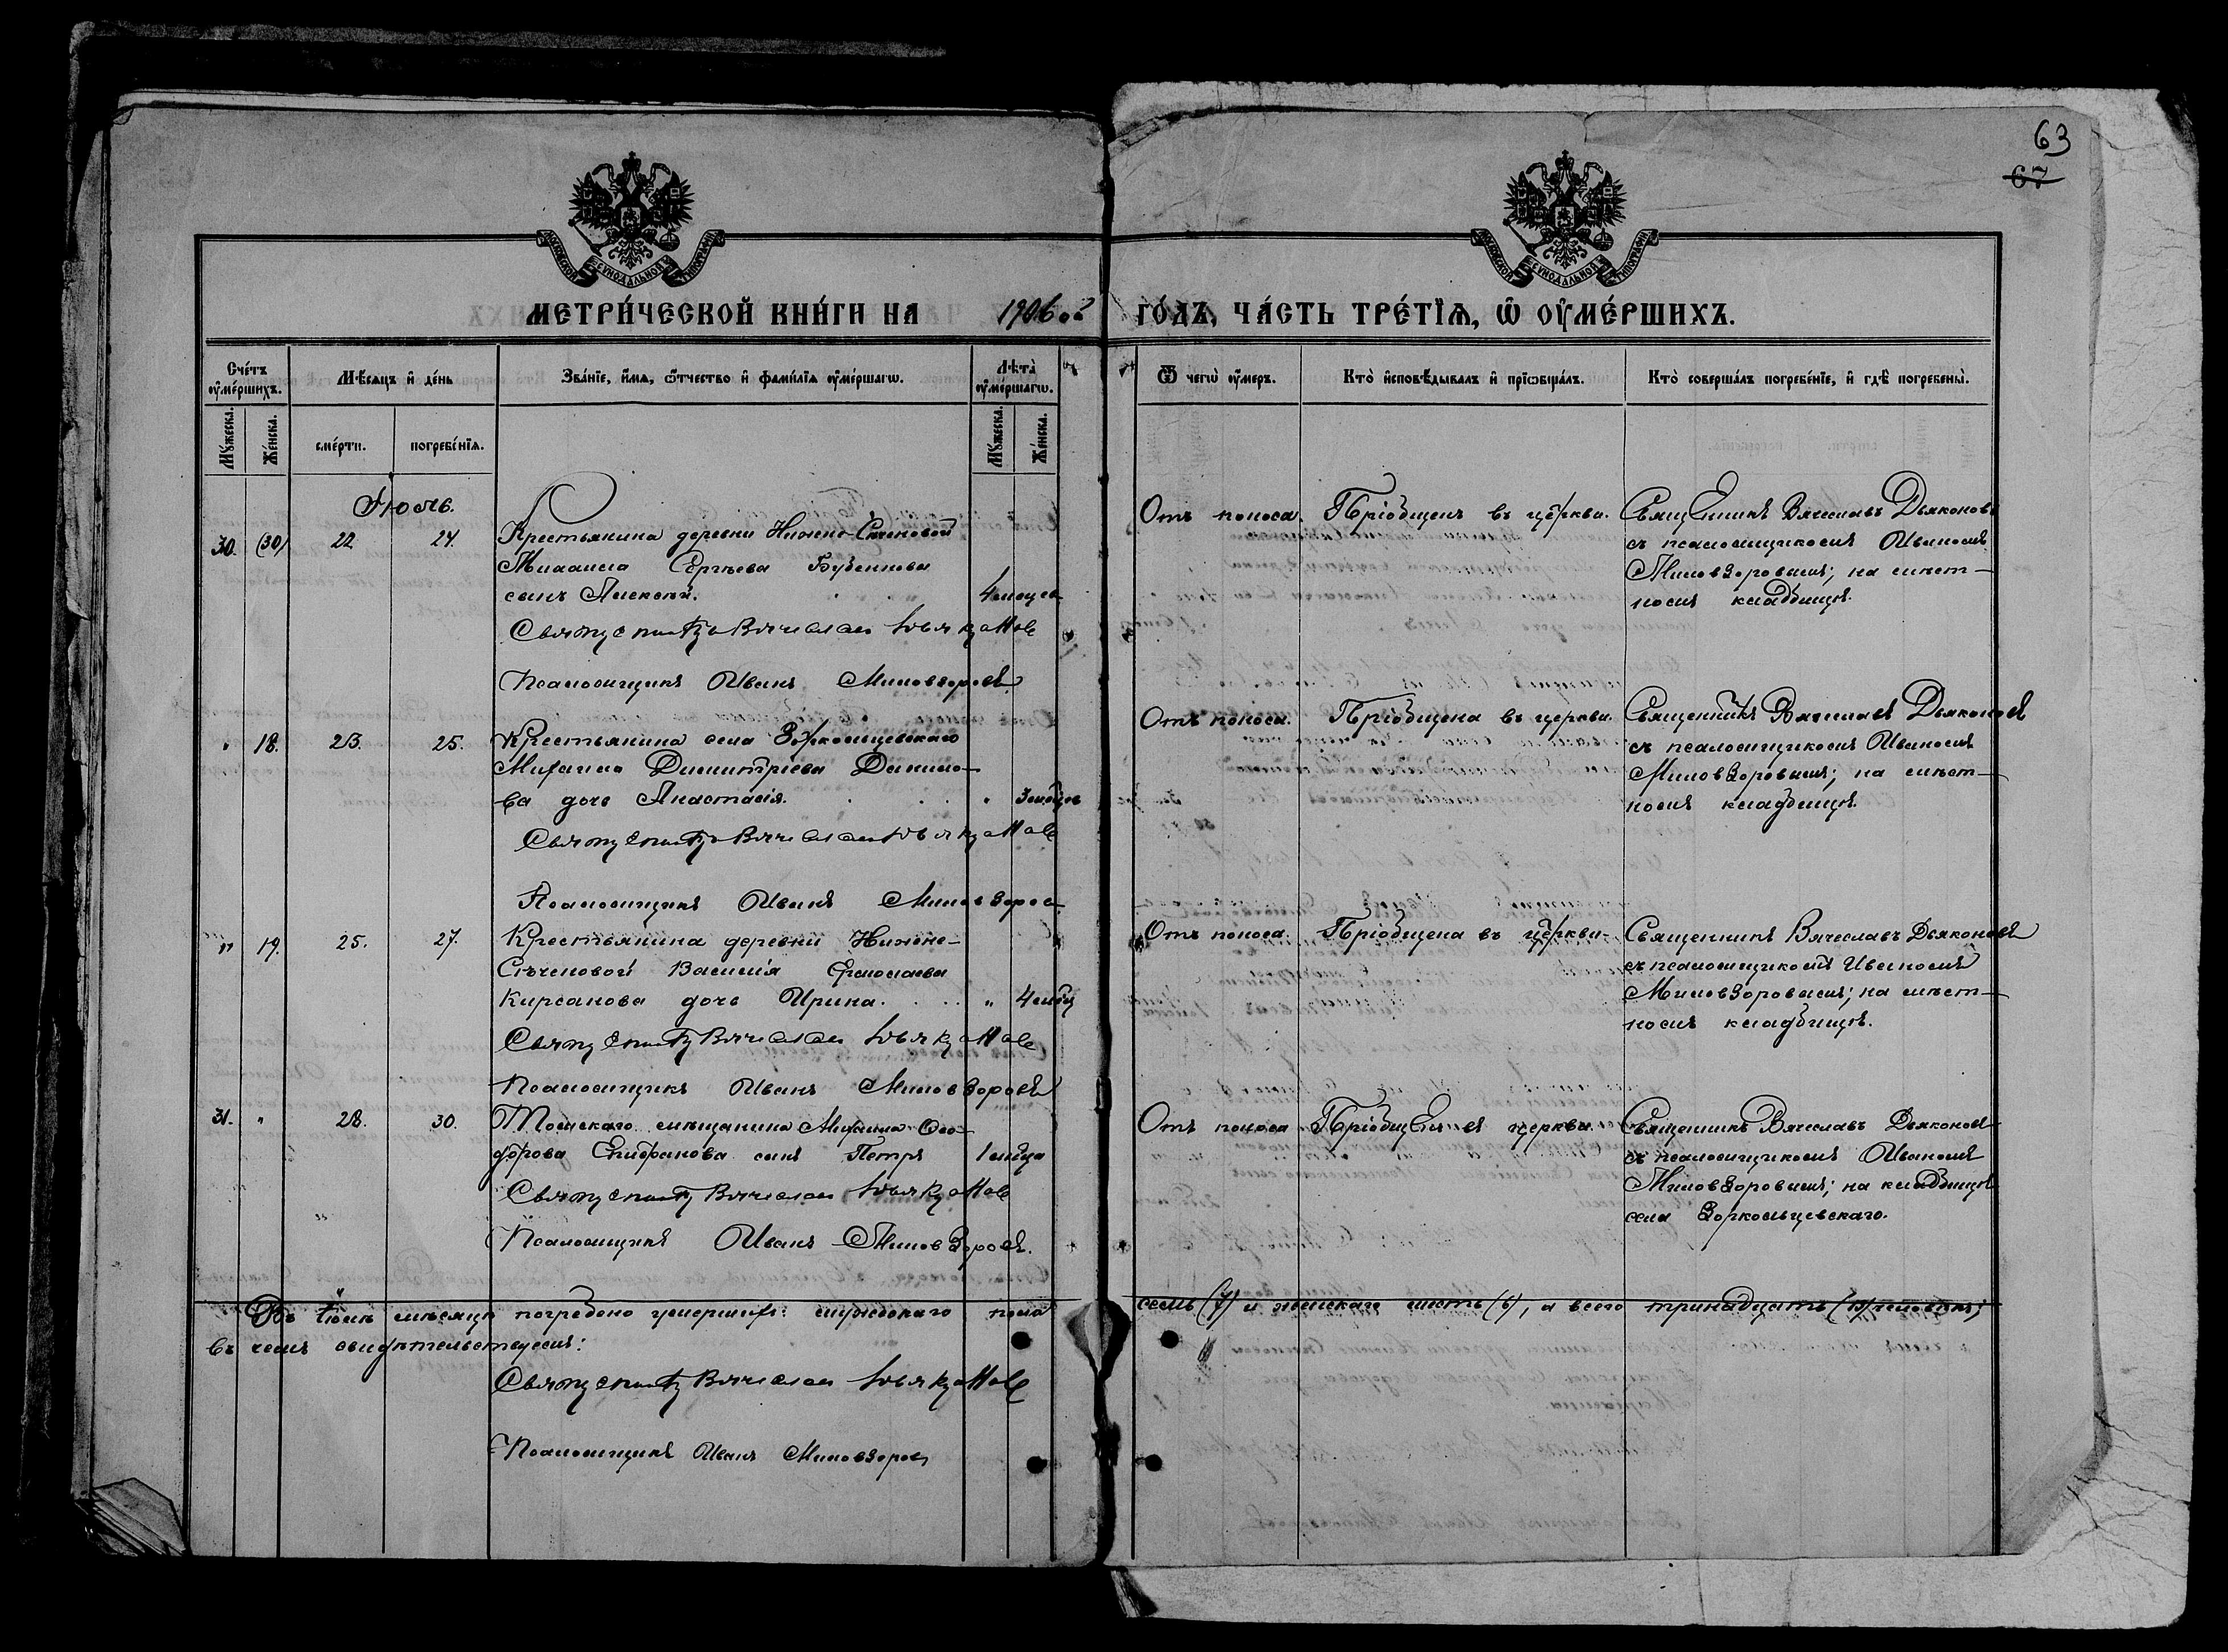 63
67
МОСКОВСКОЙ СУНОДАЛЬНОЙ ТИПОГРАФІИ
МОСКОВСКОЙ СУНОДАЛЬНОЙ ТИПОГРАФІИ
МЕТРИ́ЧЕСКОЙ КНИ́ГИ НА 1906ой ГО́ДЪ, ЧА́СТЬ ТРЕ́ТІѦ, Ѡ ОУ҆МЕ́РШИХЪ.
Сче́тъ оу҆ме́ршихъ.
Мѣ́сяцъ и҆ де́нь
Зва́ніе, и҆́мя, ѻ҆́тчество и҆ фами́лія оу҆ме́ршагѡ.
Лѣ́та оу҆ме́ршагѡ.
Ѿ чегѡ̀ оу҆́меръ.
Кто̀ и҆сповѣ́дывалъ и҆ прїѡбща́лъ.
Кто̀ соверша́лъ погребе́ніе, и҆ гдѣ̀ погребены̀.
Мꙋ́жеска.
Же́нска.
сме́рти.
погребе́нїя.
Мꙋ́жеска.
Же́нска.
Іюль.
30. (30) 22 24. Крестьянина деревни Нижне-Сѣченовой
Михаила Сергѣева Бубенкова
сынъ Алексѣй. 4 мѣсяца
Священникъ Вячеславъ Дьяконовъ
Псаломщикъ Иванъ Миловзоровъ
Отъ поноса. Пріобщенъ въ церкви. Священникъ Вячеславъ Дьяконовъ
съ псаломщикомъ Иваномъ
Миловзоровымъ; на мѣст-
номъ кладбищѣ.
" 18. 23. 25. Крестьянина села Зоркольцевскаго
Михаила Димитріева Данило-
ва дочь Анастасія. " 3 мѣсяцев
Священникъ Вячеславъ Дьяконовъ
Псаломщикъ Иванъ Миловзоров
Отъ поноса. Пріобщена въ церкви. Священникъ Вячеславъ Дьяконовъ
съ псаломщикомъ Иваномъ
Миловзоровымъ; на мѣст-
номъ кладбищѣ.
" 19. 25. 27. Крестьянина деревни Нижне-
Сѣченовой Василія Ермолаева
Кирсанова дочь Ирина. " 4 мѣсяц
Священникъ Вячеславъ Дьяконовъ
Псаломщикъ Иванъ Миловзоровъ
Отъ поноса. Пріобщена въ церкви. Священникъ Вячеславъ Дьяконовъ
съ псаломщикомъ Иваномъ
Миловзоровымъ; на мѣст-
номъ кладбищѣ.
31. " 28. 30. Томскаго мѣщанина Михаила Ѳео-
дорова Епифанова сынъ Петръ 1 мѣсяца
Священникъ Вячеславъ Дьяконовъ
Псаломщикъ Иванъ Миловзоровъ.
Отъ поноса Пріобщенъ въ церкви. Священникъ Вячеславъ Дьяконовъ
съ псаломщикомъ Иваномъ
Миловзоровымъ; на кладбищѣ
села Зоркольцевскаго.
Въ іюлѣ мѣсяцѣ погребено умершихъ: мужескаго пола семь (7) и женскаго шесть (6), а всего тринадцать (13) человѣкъ;
въ чемъ свидѣтельствуемъ:
Священникъ Вячеславъ Дьяконовъ
Псаломщикъ Иванъ Миловзоровъ